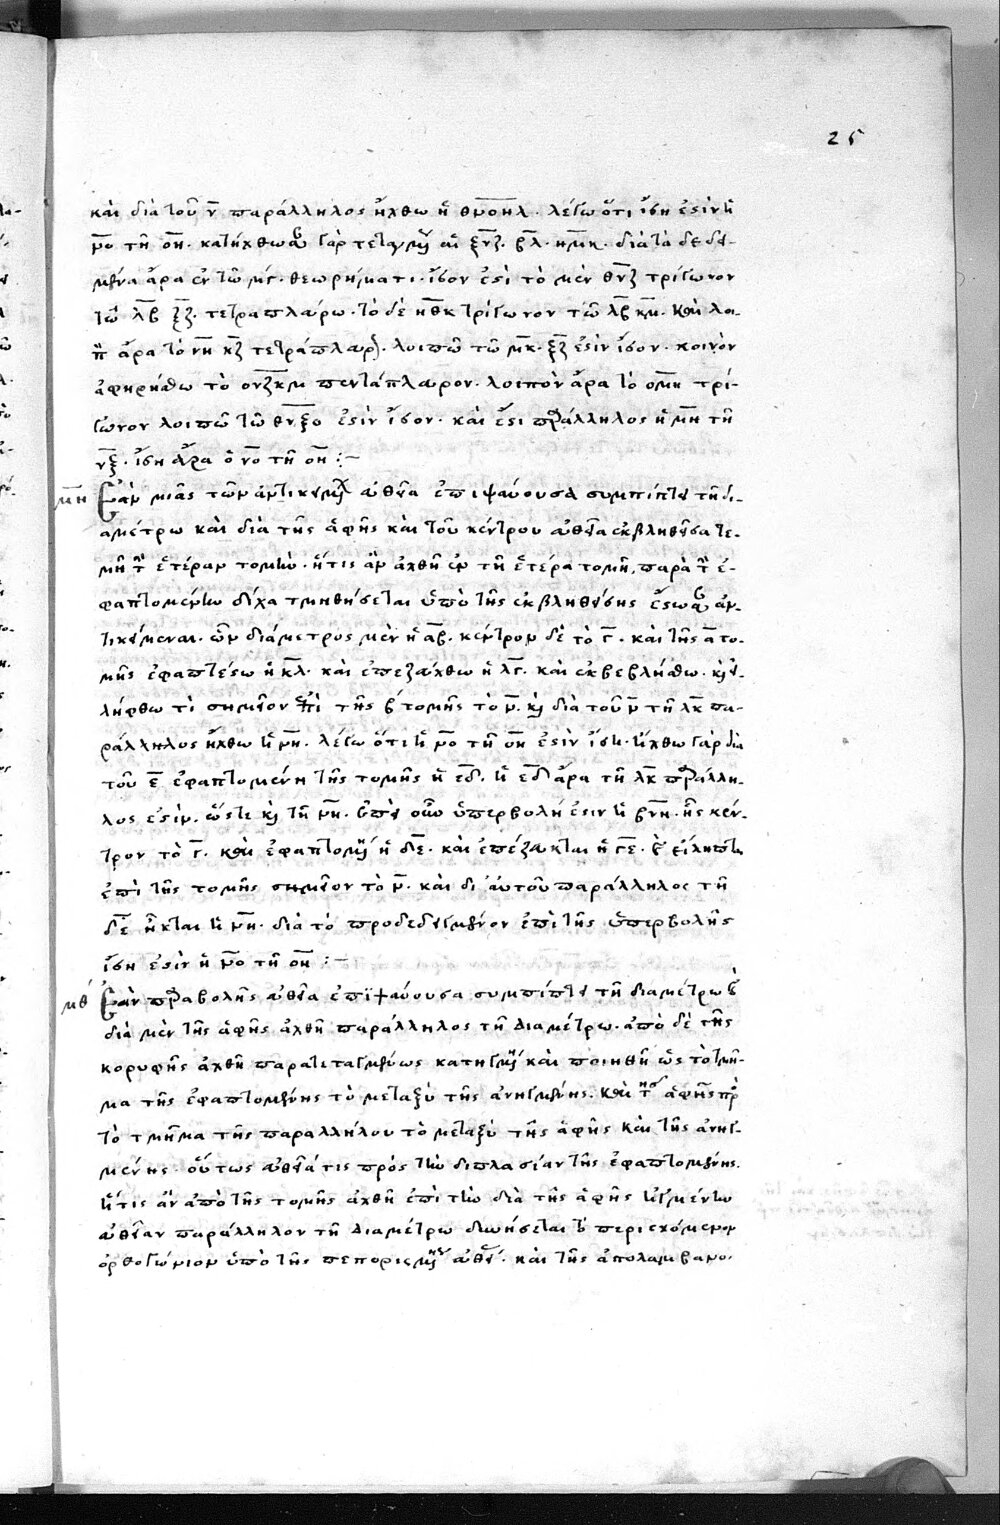 25
καὶ διὰ τοῦ ν παράλληλος ἤχθω ἡ θνομλ. λέγω ὅτι ἴση ἐστὶν ἡ
νο τῆ ομ. κατήχθωσαν γὰρ τεταγμένως αἱ ξνζ. βλ. ημκ. διὰ τὰ δεδει-
γμένα ἄρα ἐν τῶ μγ. θεωρήματι. ἴσον ἐστὶ τὸ μὲν θνζ τρίγωνον
τῶ λβ ξζ. τετραπλεύρω. τὸ δὲ ηθκ τρίγωνον τῶ λβ κμ. καὶ λοι-
πὸν ἄρα τὸ νη κζ τετράπλευρον. λοιπῶ τῶ μκ. ξζ ἐστὶν ἴσον. κοινὸν
ἀφηρήσθω τὸ ονζκμ πεντάπλευρον. λοιπὸν ἄρα τὸ ομη τρί-
γωνον λοιπῶ τῶ θνξο ἐστὶν ἴσον. καὶ ἔστι παράλληλος ἡ μη τῆ
νξ. ἴση ἄρα ἡ νο τῆ ομ :-
μη Ἐὰν μιᾶς τῶν ἀντικειμένων εὐθεῖα ἐπιψαύουσα συμπίπτη τῆ δι-
αμέτρω καὶ διὰ τῆς ἁφῆς καὶ τοῦ κέντρου εὐθεῖα ἐκβληθεῖσα τέ-
μη τὴν ἑτέραν τομὴν. ἥτις ἂν ἀχθῆ ἐν τῆ ἑτέρα τομῆ, παρὰ τὴν ἐ-
φαπτομένην δίχα τμηθήσεται ὑπὸ τῆς ἐκβληθείσης ἔστωσαν ἀν-
τικείμεναι. ὧν διάμετρος μὲν ἡ αβ. κέντρον δὲ τὸ γ. καὶ τῆς α το-
μῆς ἐφαπτέσθω ἡ κλ. καὶ ἐπεζεύχθω ἡ λγ. καὶ ἐκβεβλήσθω. καὶ εἰ-
λήφθω τὶ σημεῖον ἐπὶ τῆς β τομῆς τὸ ν. καὶ διὰ τοῦ ν τῆ λκ πα-
ράλληλος ἤχθω ἡ νη. λέγω ὅτι ἡ νο τῆ οη ἐστὶν ἴση. ἤχθω γὰρ διὰ
τοῦ ε ἐφαπτομένη τῆς τομῆς ἡ εδ. ἡ εδ ἄρα τῆ λκ παράλλη-
λος ἐστὶν. ὥστε καὶ τῆ νη. ἐπεὶ οὖν ὑπερβολή ἐστιν ἡ βνη. ἧς κέν-
τρον τὸ γ. καὶ ἐφαπτομένη ἡ δε. καὶ ἐπέζευκται ἡ γε. καὶ εἴληπται
ἐπὶ τῆς τομῆς σημεῖον τὸ ν. καὶ δι αὐτοῦ παράλληλος τῆ
δε ἦκται ἡ νη. διὰ τὸ προδεδειγμένον ἐπὶ τῆς ὑπερβολῆς
ἴση ἐστὶν ἡ νο τῆ οη :-
μθ Ἐὰν παραβολῆς εὐθεῖα ἐπιψαύουσα συμπίπτη τῆ διαμέτρω καὶ
διὰ μὲν τῆς ἁφῆς ἀχθῆ παράλληλος τῆ διαμέτρω. ἀπὸ δὲ τῆς
κορυφῆς ἀχθῆ παρατεταγμένως κατηγμένη καὶ ποιηθῆ ὡς τὸ τμῆ-
μα τῆς ἐφαπτομένης τὸ μεταξὺ τῆς ἀνηγμένης. καὶ τῆς ἁφῆς πρὸς
τὸ τμῆμα τῆς παραλλήλου τὸ μεταξὺ τῆς ἁφῆς καὶ τῆς ἀνηγ-
μένης. οὕτως εὐθεῖά τις πρὸς τὴν διπλασίαν τῆς ἐφαπτομένης.
ἥτις ἂν ἀπὸ τῆς τομῆς ἀχθῆ ἐπὶ τὴν διὰ τῆς ἁφῆς ἠγμένην
εὐθεῖαν παράλληλον τῆ διαμέτρω δυνήσεται τὸ περιεχόμενον
ὀρθογώνιον ὑπὸ τῆς πεπορισμένης εὐθείας. καὶ τῆς ἀπολαμβανο-